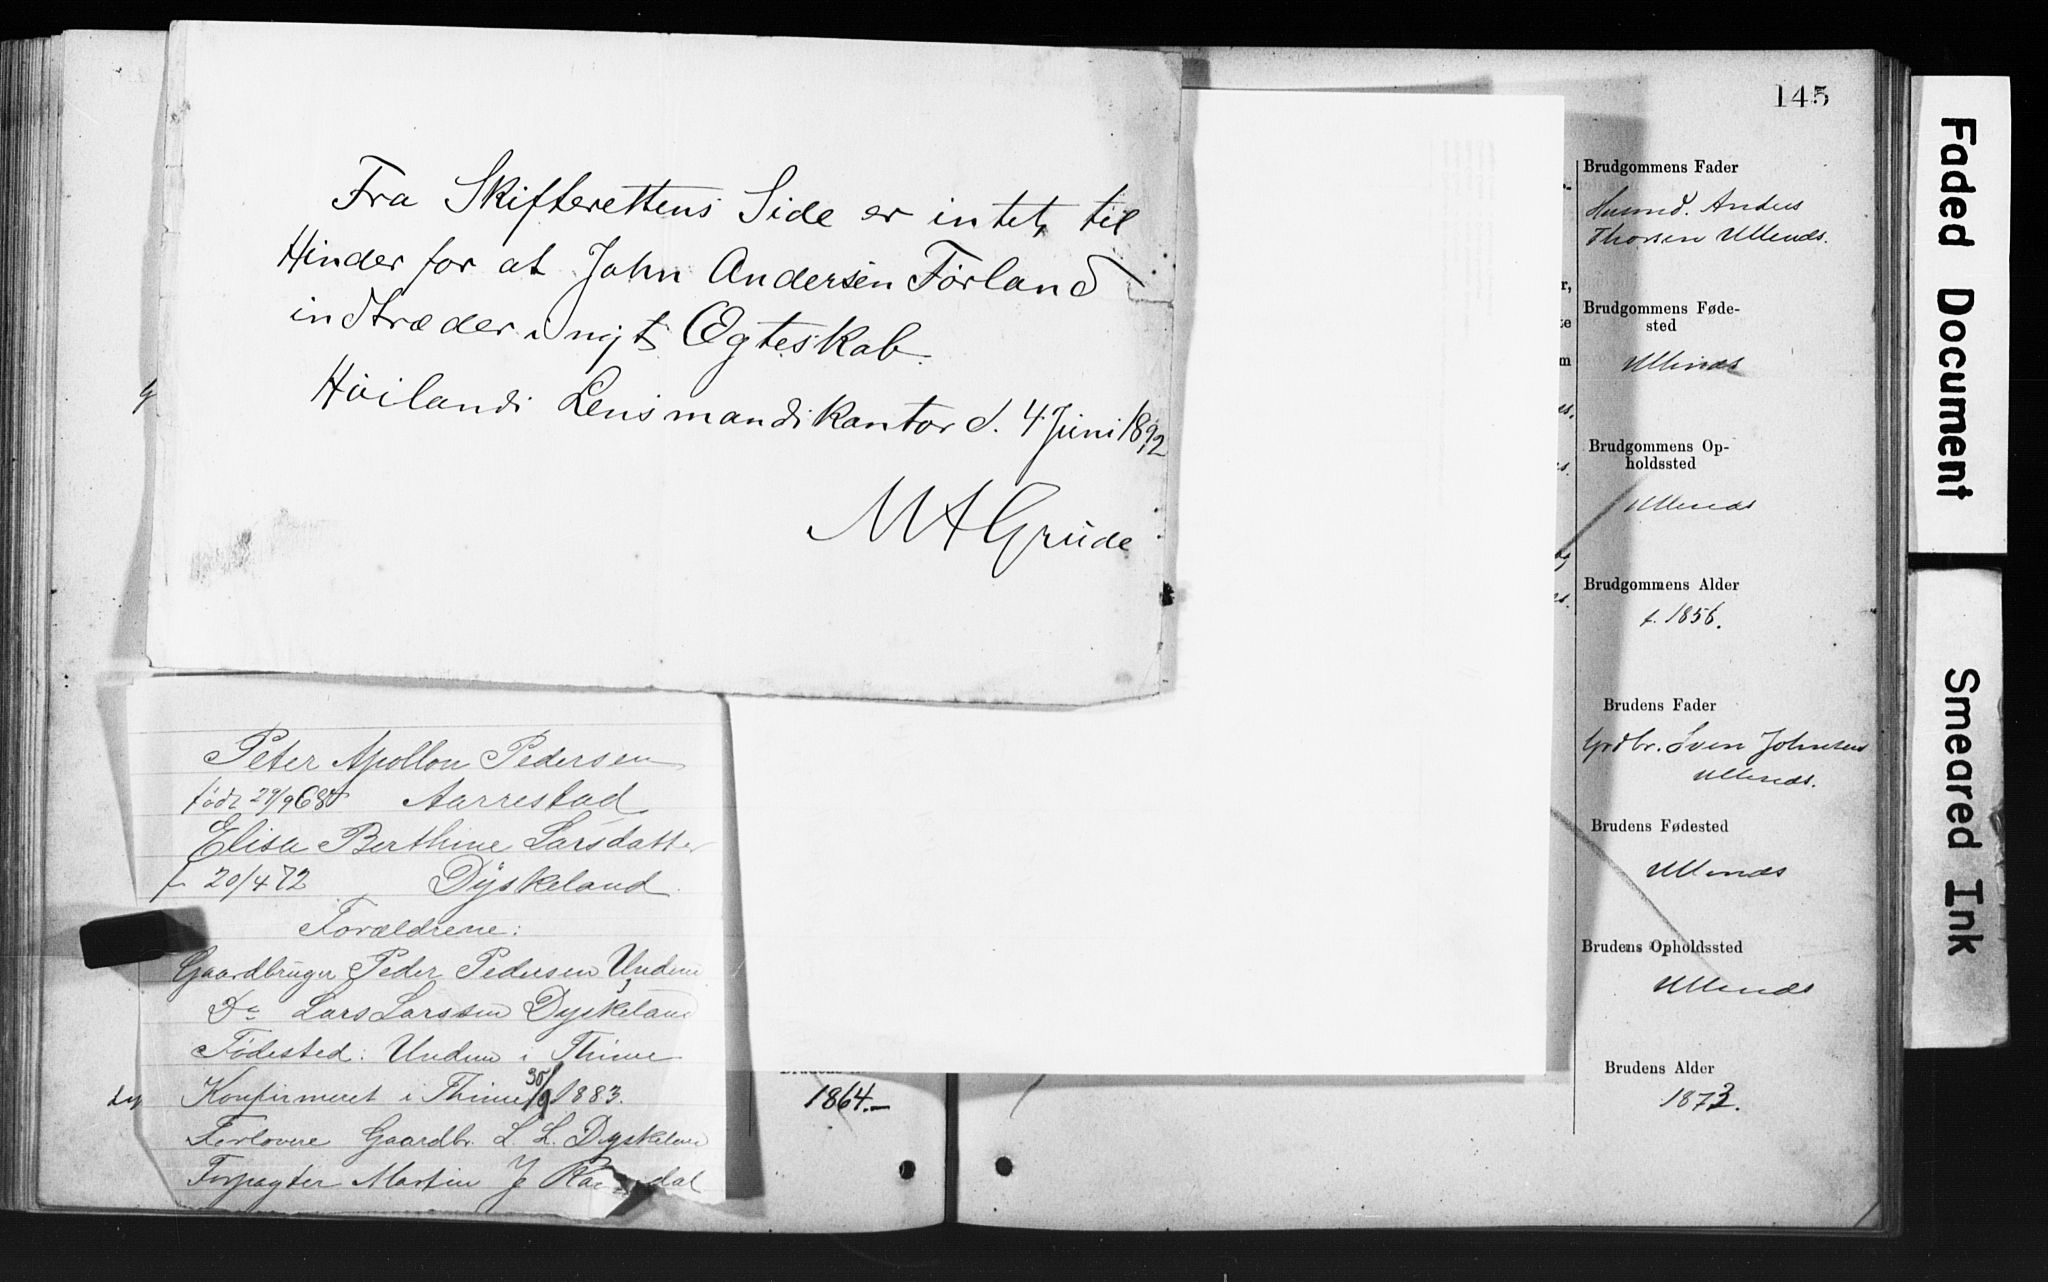 Fra Skifterettens Side er intet til
Hinder for at John Andersen Førland
indtræder i nyt Ægteskab.
Höilands Lensmandskontor d. 4 Juni 1892
M A Grude
Peter Apollon Pedersen
født 29/9 68 Aarrestad
Elise Berthine Larsdatter
f 20/4 72 Dyskeland.
Forældrene:
Gaardbruger Peder Pedersen Undem
Do Lars Larssen Dyskeland
Fødested: Undem i Thime
Konfirmeret i Thime 1883.
Forlovere Gaardbr. L. L. Dyskeland
Forpagter Martin J
1864.—
145
Brudgommens Fader
Husmd. Anders
Thorsen Ullends.
Brudgommens Føde-
sted
Ullends
Brudgommens Op-
holdssted
Ullends
Brudgommens Alder
f. 1856.
Brudens Fader
Grdbr. Sven Johnsen
Ullends.
Brudens Fødested
Ullends
Brudens Opholdssted
Ullends
Brudens Alder
1873.
Faded Document
Smeared Ink